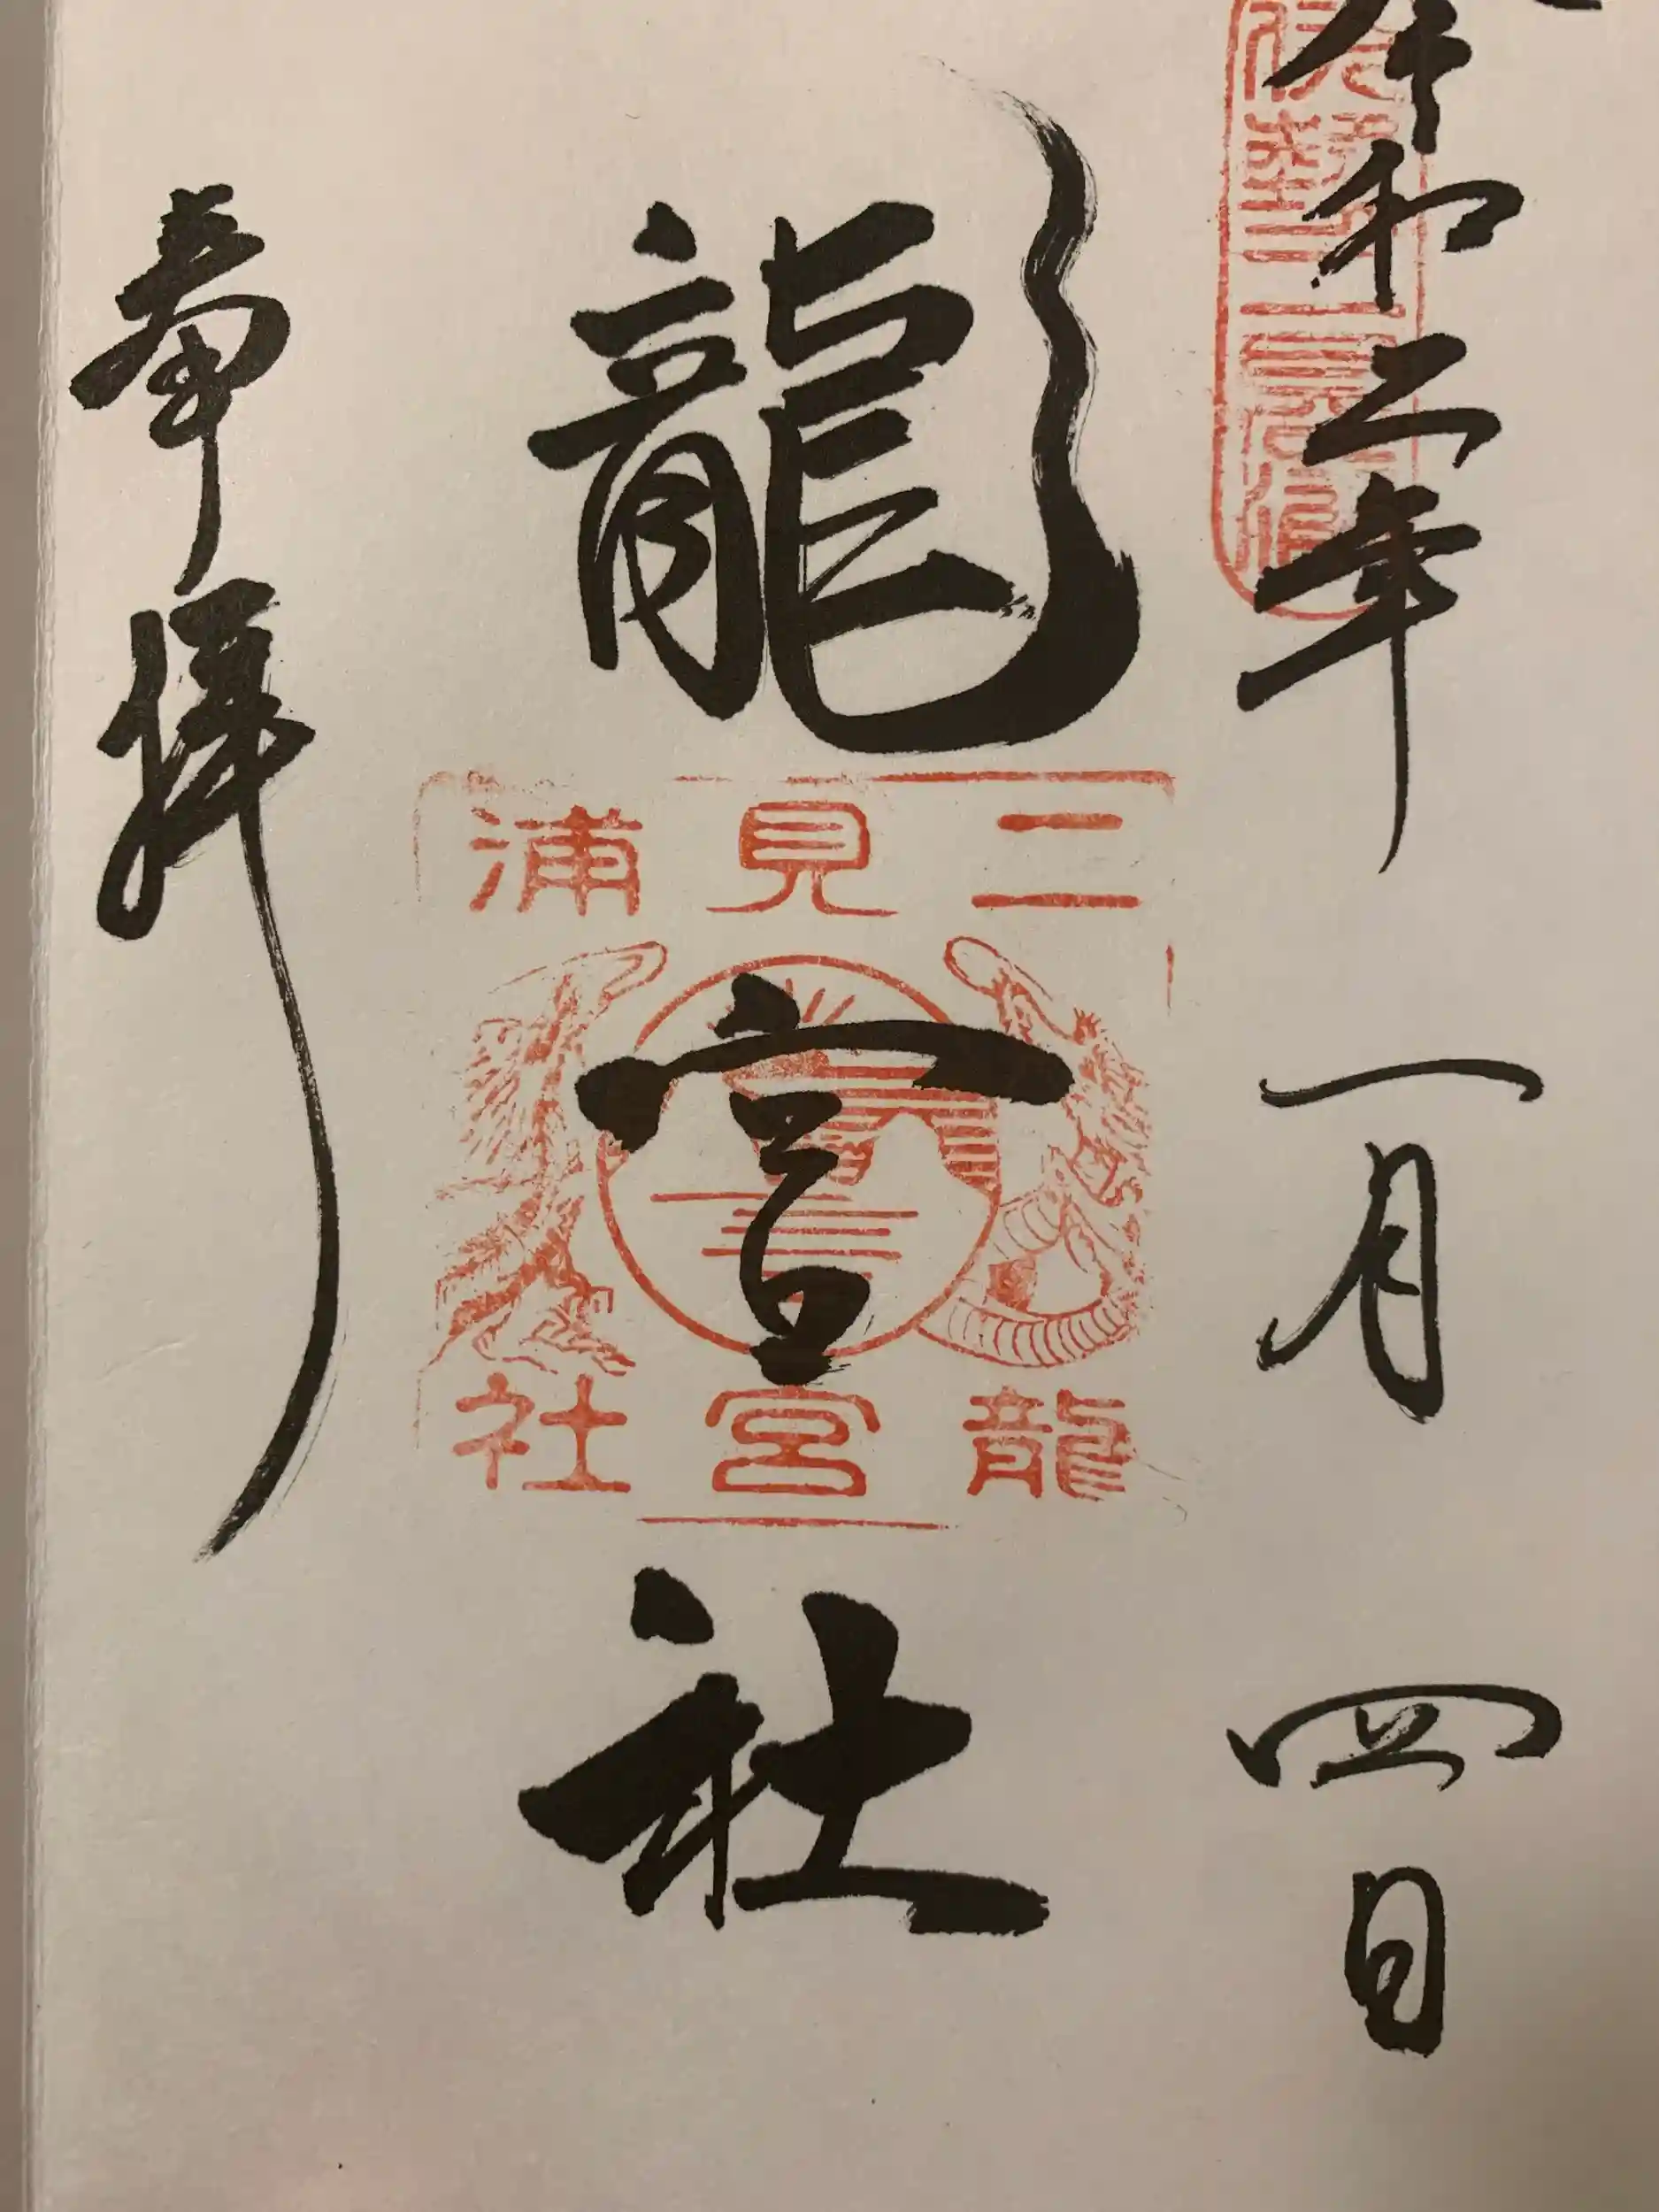 令和二年一月四日
龍宮社
奉拝
二見浦
龍宮社